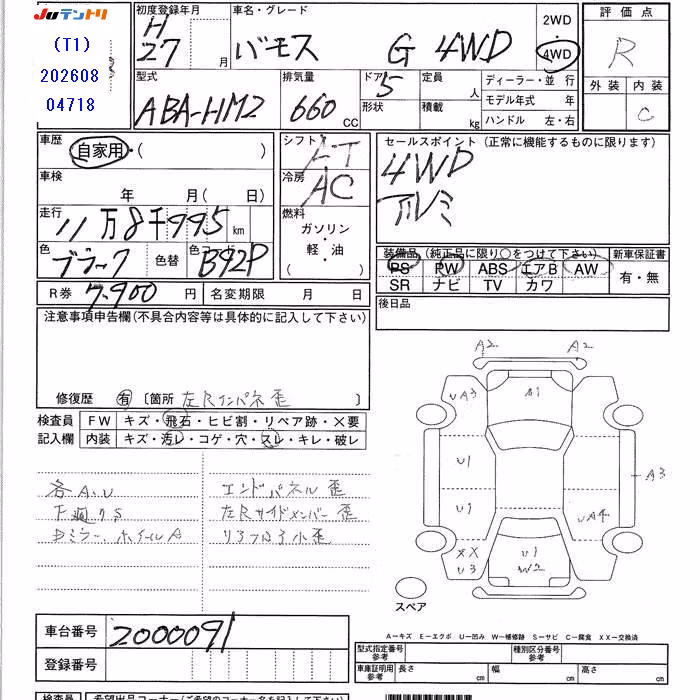 JUテントリ
(T1)
202608
04718
初度登録年月 H27 月
車名・グレード バモス G 4WD
2WD
4WD
評価点 R
外装 内装
C
型式 ABA-HM2
排気量 660 CC
ドア 5
形状
定員 人
積載 kg
ディーラー・並行
モデル年式 年
ハンドル 左・右
車歴 自家用・( )
車検 年 月( 日)
走行 11万8千995 km
色 ブラック 色替 色コード B92P
シフト AT
冷房 AC
燃料
ガソリン
・
軽・油
( )
セールスポイント (正常に機能するものに限ります)
4WD
アルミ
装備品 (純正品に限り○をつけて下さい)
PS PW ABS エアB AW
SR ナビ TV カワ
新車保証書
有・無
R券 7,900 円 名変期限 月 日
後日品
注意事項申告欄(不具合内容等は具体的に記入して下さい)
修復歴 有 〔箇所 左Rインパネ歪 〕
検査員
記入欄
FW キズ・飛石・ヒビ割・リペア跡・×要
内装 キズ・汚レ・コゲ・穴・スレ・キレ・破レ
各A.U
下廻りS
ミラー、ホイールA
エンドパネル歪
左Rサイドメンバー歪
リアフロア小歪
A2 A2
UA3 A1
U1
A3
U1
UA4
XX
U3
U1
W2
スペア
車台番号 2000091
登録番号
A−キズ E−エクボ U−凹み W−補修跡 S−サビ C−腐食 XX−交換済
型式指定番号 参考
種別区分番号 参考
車庫証明用 参考 長さ cm 幅 cm 高さ cm
検査員 希望出品コーナー(ご希望のコーナー名を記入して下さい)